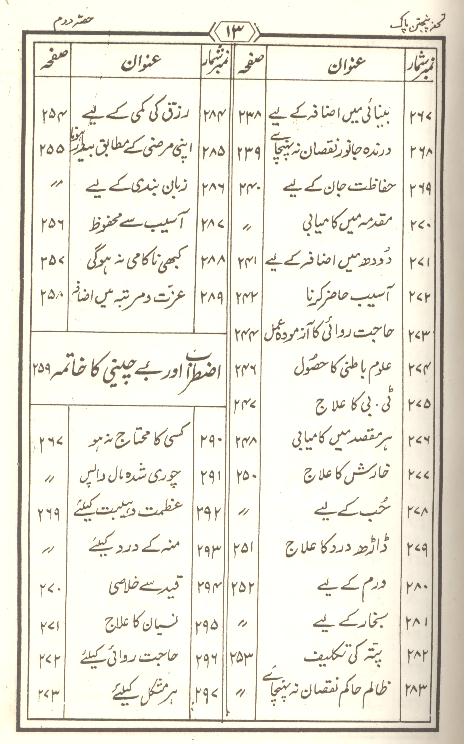 تحفہ پنجتن پاک ۱۳ حصہ دوم
نمبر شمار عنوان صفحہ
۲۶۷ بینائی میں اضافہ کے لیے ۲۳۸
۲۶۸ درندہ جانور نقصان نہ پہنچائے ۲۳۹
۲۶۹ حفاظت جان کے لیے ۲۴۰
۲۷۰ مقدمہ میں کامیابی 〃
۲۷۱ دودھ میں اضافہ کے لیے ۲۴۱
۲۷۲ آسیب حاضر کرنا ۲۴۲
۲۷۳ حاجت روائی کا آزمودہ عمل ۲۴۴
۲۷۴ علوم باطنی کا حصول ۲۴۶
۲۷۵ ٹی۔بی کا علاج ۲۴۷
۲۷۶ ہر مقصد میں کامیابی ۲۴۸
۲۷۷ خارش کا علاج ۲۵۰
۲۷۸ حُب کے لیے 〃
۲۷۹ ڈاڑھ درد کا علاج ۲۵۱
۲۸۰ ورم کے لیے ۲۵۲
۲۸۱ بخار کے لیے 〃
۲۸۲ پتّہ کی تکلیف ۲۵۳
۲۸۳ ظالم حاکم نقصان نہ پہنچائے 〃
نمبر شمار عنوان صفحہ
۲۸۴ رزق کی کمی کے لیے ۲۵۴
۲۸۵ اپنی مرضی کے مطابق بیدار ہونا ۲۵۵
۲۸۶ زبان بندی کے لیے 〃
۲۸۷ آسیب سے محفوظ ۲۵۶
۲۸۸ کبھی ناکامی نہ ہوگی ۲۵۷
۲۸۹ عزّت و مرتبہ میں اضافہ ۲۵۸
اضطراب اور بے چینی کا خاتمہ ۲۵۹
۲۹۰ کسی کا محتاج نہ ہو ۲۶۷
۲۹۱ چوری شدہ مال واپس 〃
۲۹۲ عظمت و ہیبت کیلئے ۲۶۹
۲۹۳ منہ کے درد کیلئے 〃
۲۹۴ قید سے خلاصی ۲۷۰
۲۹۵ نسیان کا علاج ۲۷۱
۲۹۶ حاجت روائی کیلئے ۲۷۲
۲۹۷ ہر مشکل کیلئے ۲۷۳